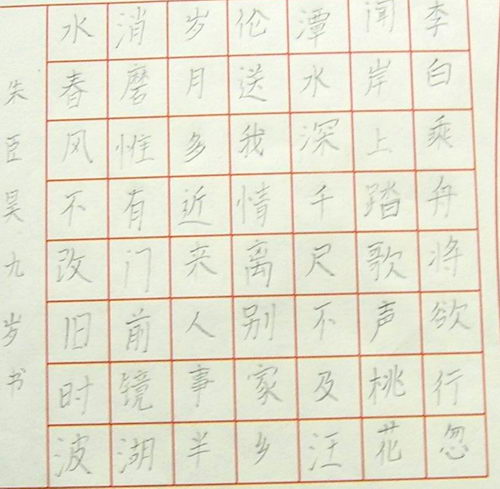 李白乘舟将欲行忽
闻岸上踏歌声桃花
潭水深千尺不及汪
伦送我情离别家乡
岁月多近来人事半
消磨惟有门前镜湖
水春风不改旧时波
朱臣昊九岁书